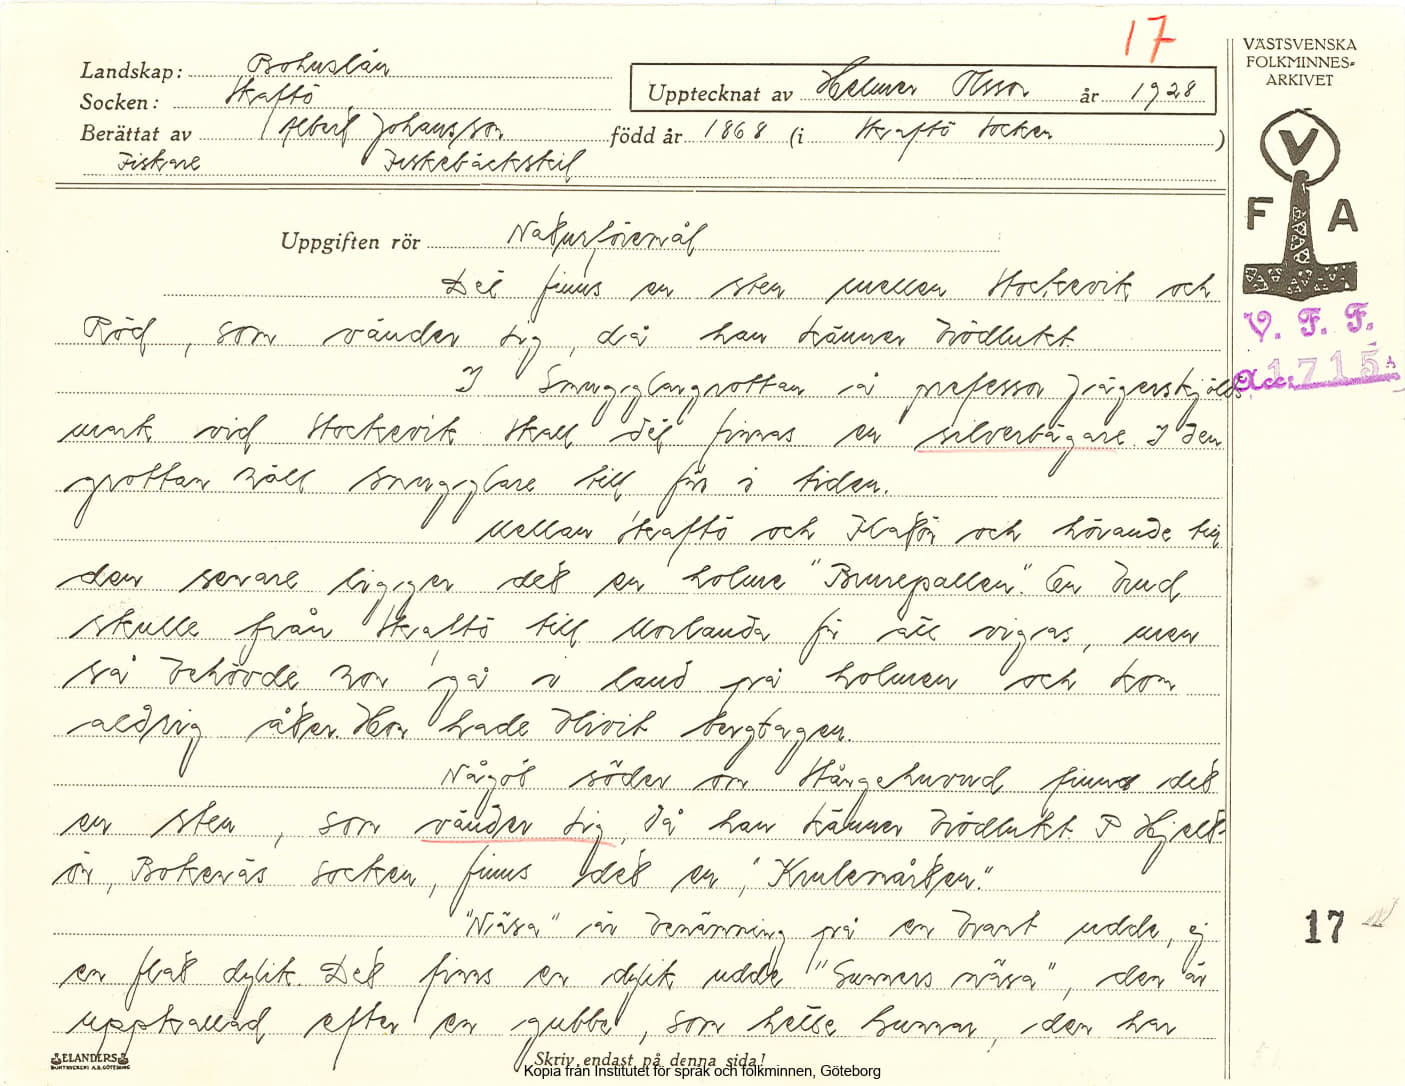 17
VÄSTSVENSKA
FOLKMINNES-
ARKIVET
Landskap: Bohuslän
Socken: Skaftö
Upptecknat av Helmer Olsson år 1928
Berättat av Albert Johansson född år 1868 (i Skaftö socken )
Fiskare Fiskebäckskil
V
F A
Uppgiften rör Naturföremål
Det finns en sten mellan Stockevik och
Röd, som vänder sig, då han känner brödlukt.
V. F. F.
Acc: 1715
I Smugglargrottan på professor Jägerskjölds
mark vid Stockevik skall det finnas en silverbägare. I den
grottan höll smugglare till för i tiden.
Mellan Skaftö och Flatön och hörande till
den senare ligger det en holme "Brurepallen". En brud
skulle från Skaftö till Morlanda för att vigas, men
så behövde hon gå i land på holmen och kom
aldrig åter. Hon hade blivit bergtagen.
Något söder om Stångehuvud finns det
en sten, som vänder sig, då han känner brödlukt. På
ön, Bokenäs socken, finns det en
"Näsa" är benämning på en brant udde, ej
en flat dylik. Det finns en dylik udde "Gunnars näsa", den är
uppkallad efter en gubbe, som hette Gunnar, den har
17
ELANDERS
BOKTRYCKERI A.B. GÖTEBORG
Skriv endast på denna sida!
Kopia från Institutet för språk och folkminnen, Göteborg